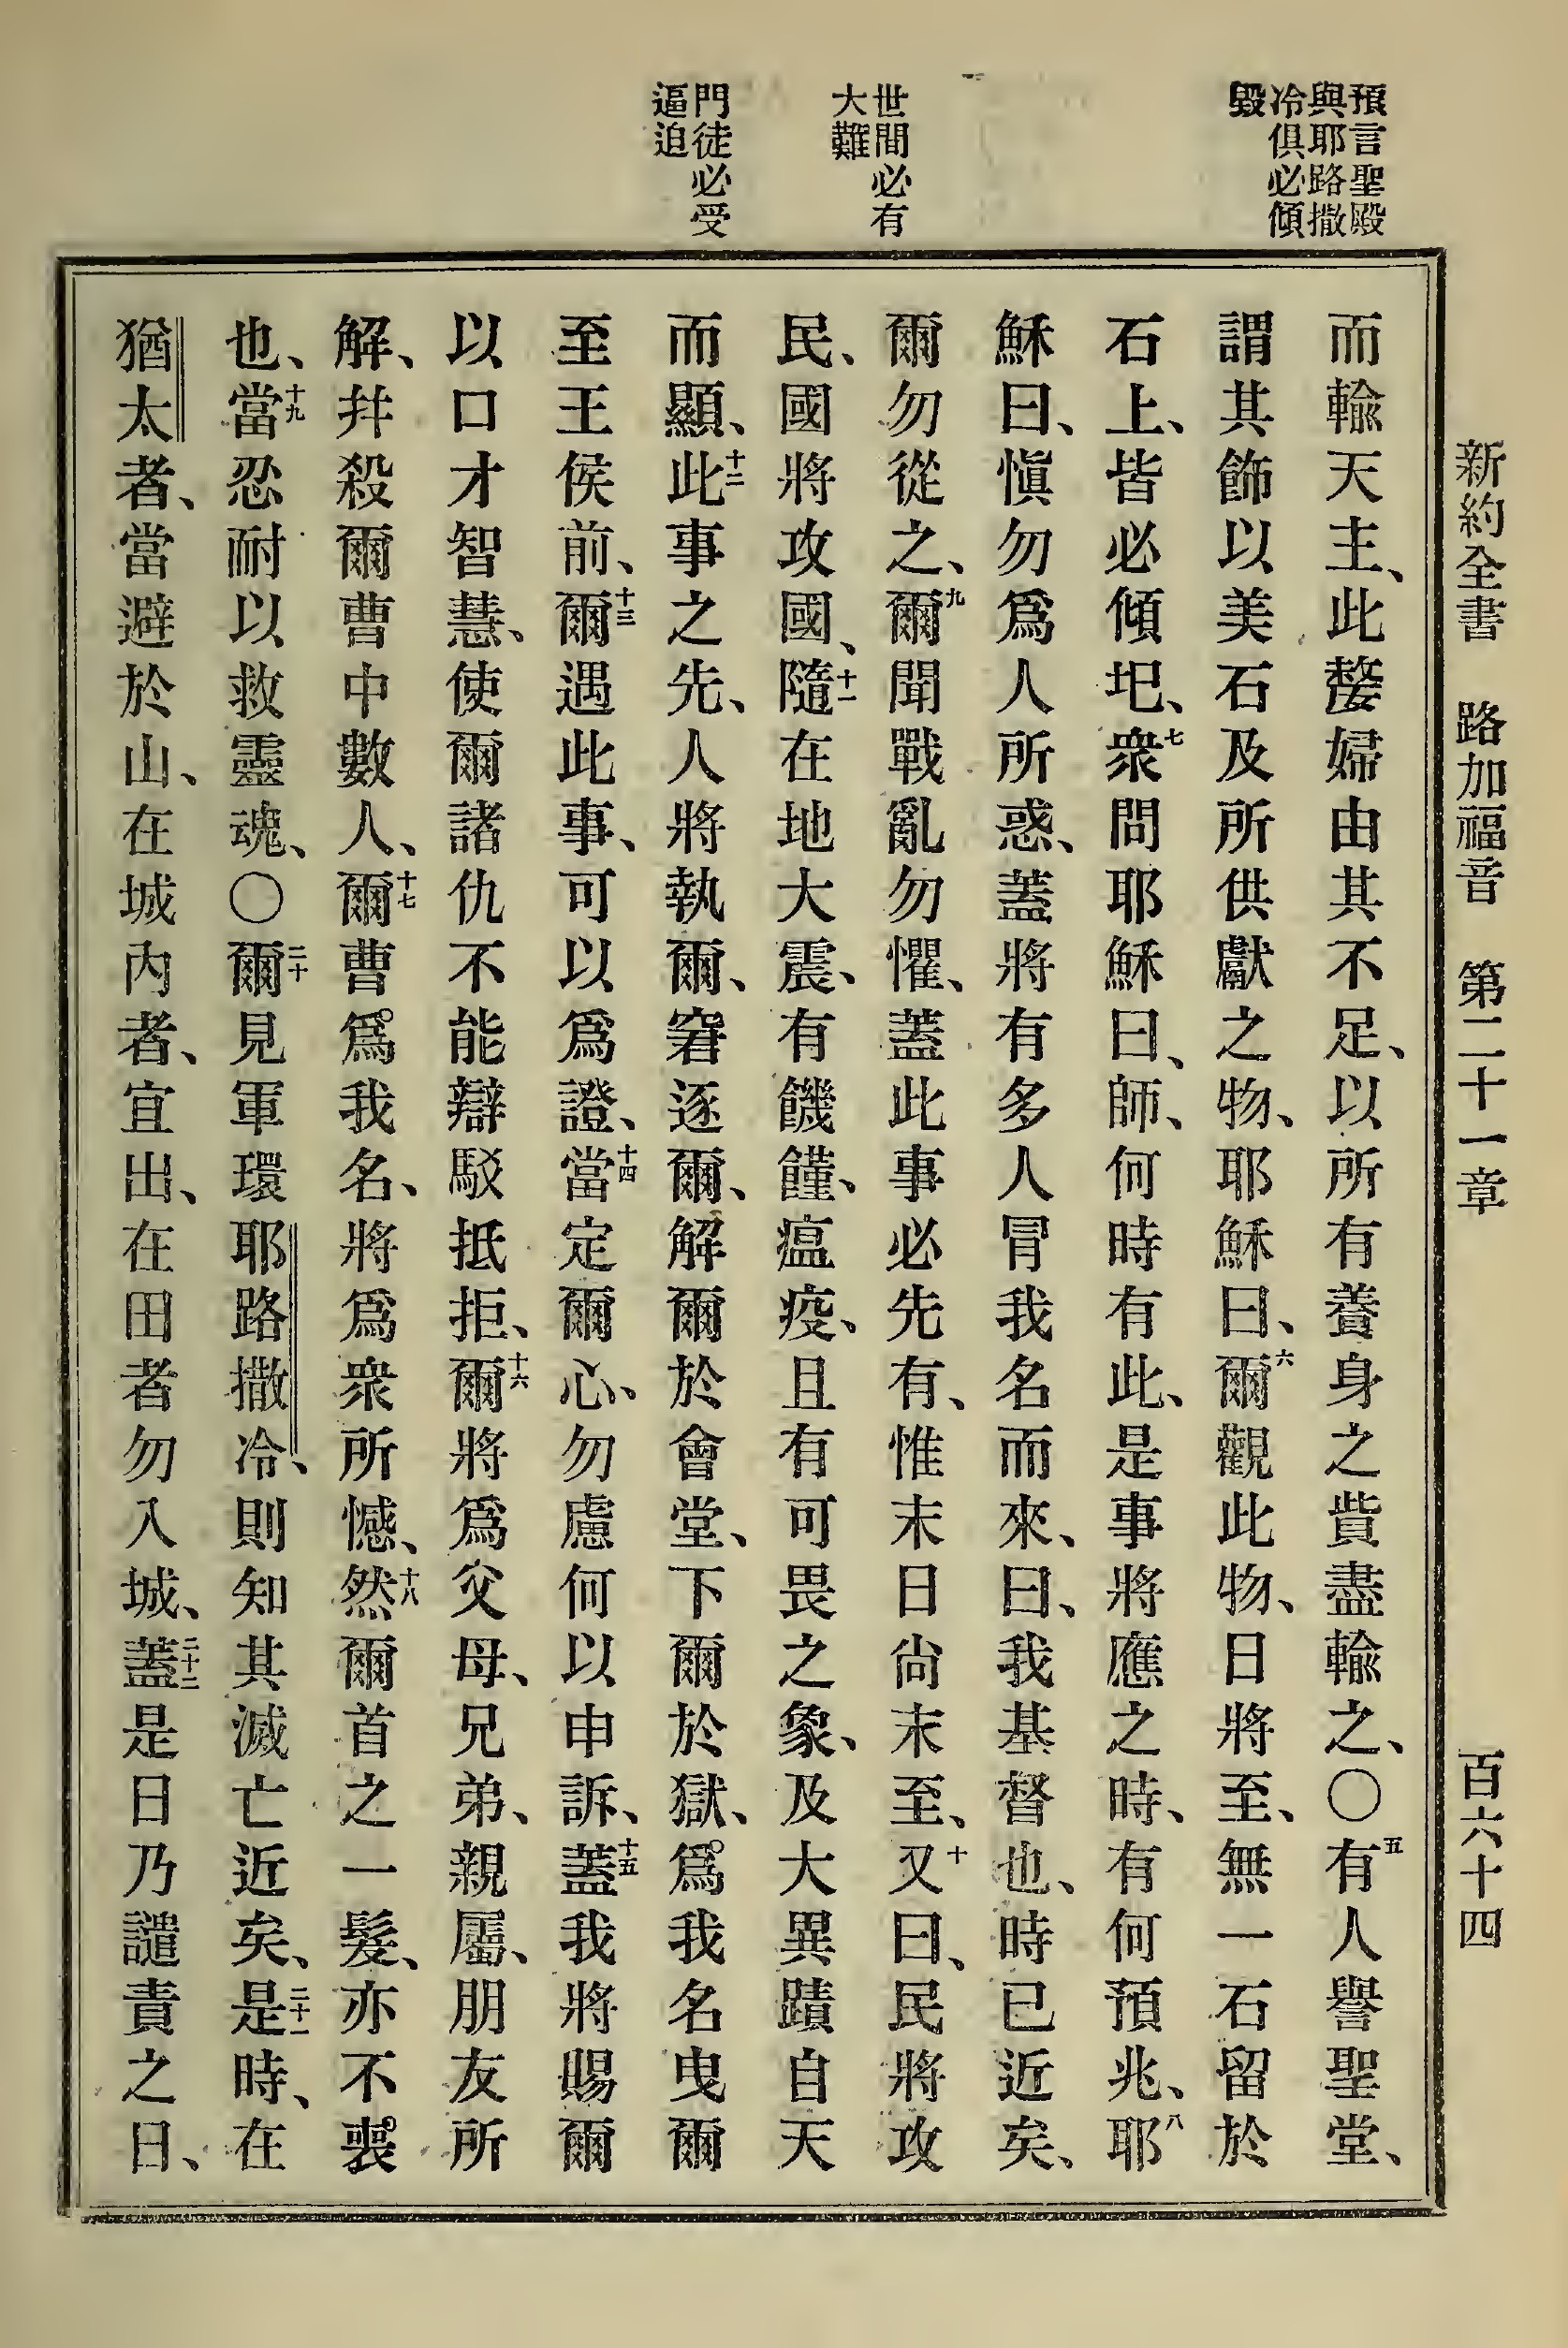 新約全書 路加福音 第二十一章 百六十四
預言聖殿
與耶路撒
冷俱必傾
毀
世間必有
大難
門徒必受
逼迫
而輸天主、此嫠婦由其不足、以所有養身之貲盡輸之、〇五有人譽聖堂、
謂其飾以美石及所供獻之物、耶穌曰、六爾觀此物、日將至、無一石留於
石上、皆必傾圮、七衆問耶穌曰、師、何時有此、是事將應之時、有何預兆、八耶
穌曰、愼勿爲人所惑、蓋將有多人冐我名而來、曰、我基督也、時已近矣、
爾勿從之、九爾聞戰亂勿懼、蓋此事必先有、惟末日尙未至、十又曰、民將攻
民、國將攻國、十一隨在地大震、有饑饉、瘟疫、且有可畏之象、及大異蹟自天
而顯、十二此事之先、人將執爾、窘逐爾、解爾於會堂、下爾於獄、爲我名曳爾
至王侯前、十三爾遇此事、可以爲證、十四當定爾心、勿慮何以申訴、十五蓋我將賜爾
以口才智慧、使爾諸仇不能辯駁抵拒、十六爾將爲父母、兄弟、親屬、朋友所
解、幷殺爾曹中數人、十七爾曹爲我名、將爲衆所憾、十八然爾首之一髮、亦不喪
也、十九當忍耐以救靈魂、〇二十爾見軍環耶路撒冷、則知其滅亡近矣、二十一是時、在
猶太者、當避於山、在城內者、宜出、在田者勿入城、二十二蓋是日乃譴責之日、